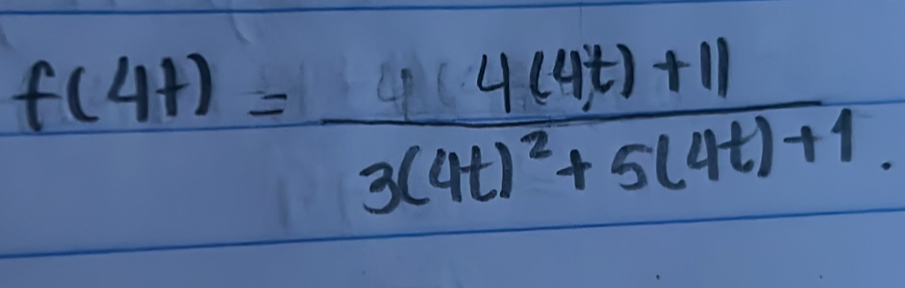 f(4t) = 4(4t) + 11
3(4t)² + 5(4t) + 1.